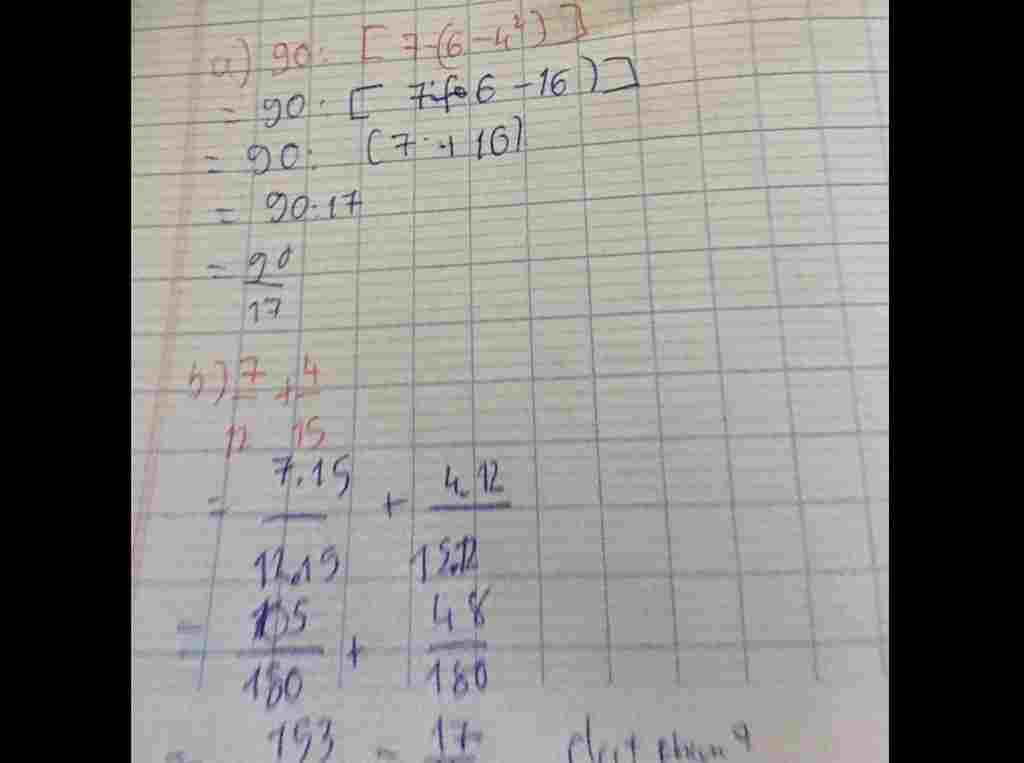 a) 90: [7-(6-4²)]
= 90: [ 6-16)]
= 90: (7+10)
= 90:17
= 90/17
b) 7/12 + 4/15
= 7.15/12.15 + 4.12/15.12
= 105/180 + 48/180
= 153 = 17